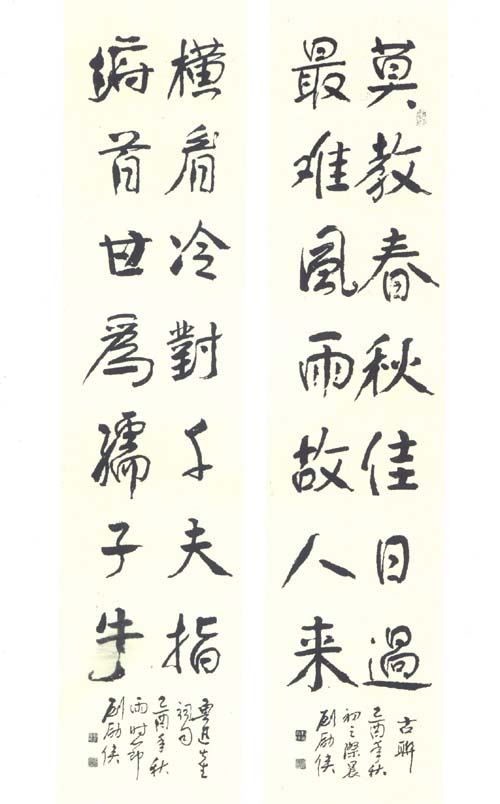 莫教春秋佳日過
最难風雨故人来
古聯
乙酉年秋
初之際晨
橫眉冷對千夫指
俯首甘為孺子牛
魯迅先生
詞句
乙酉年秋
雨时节